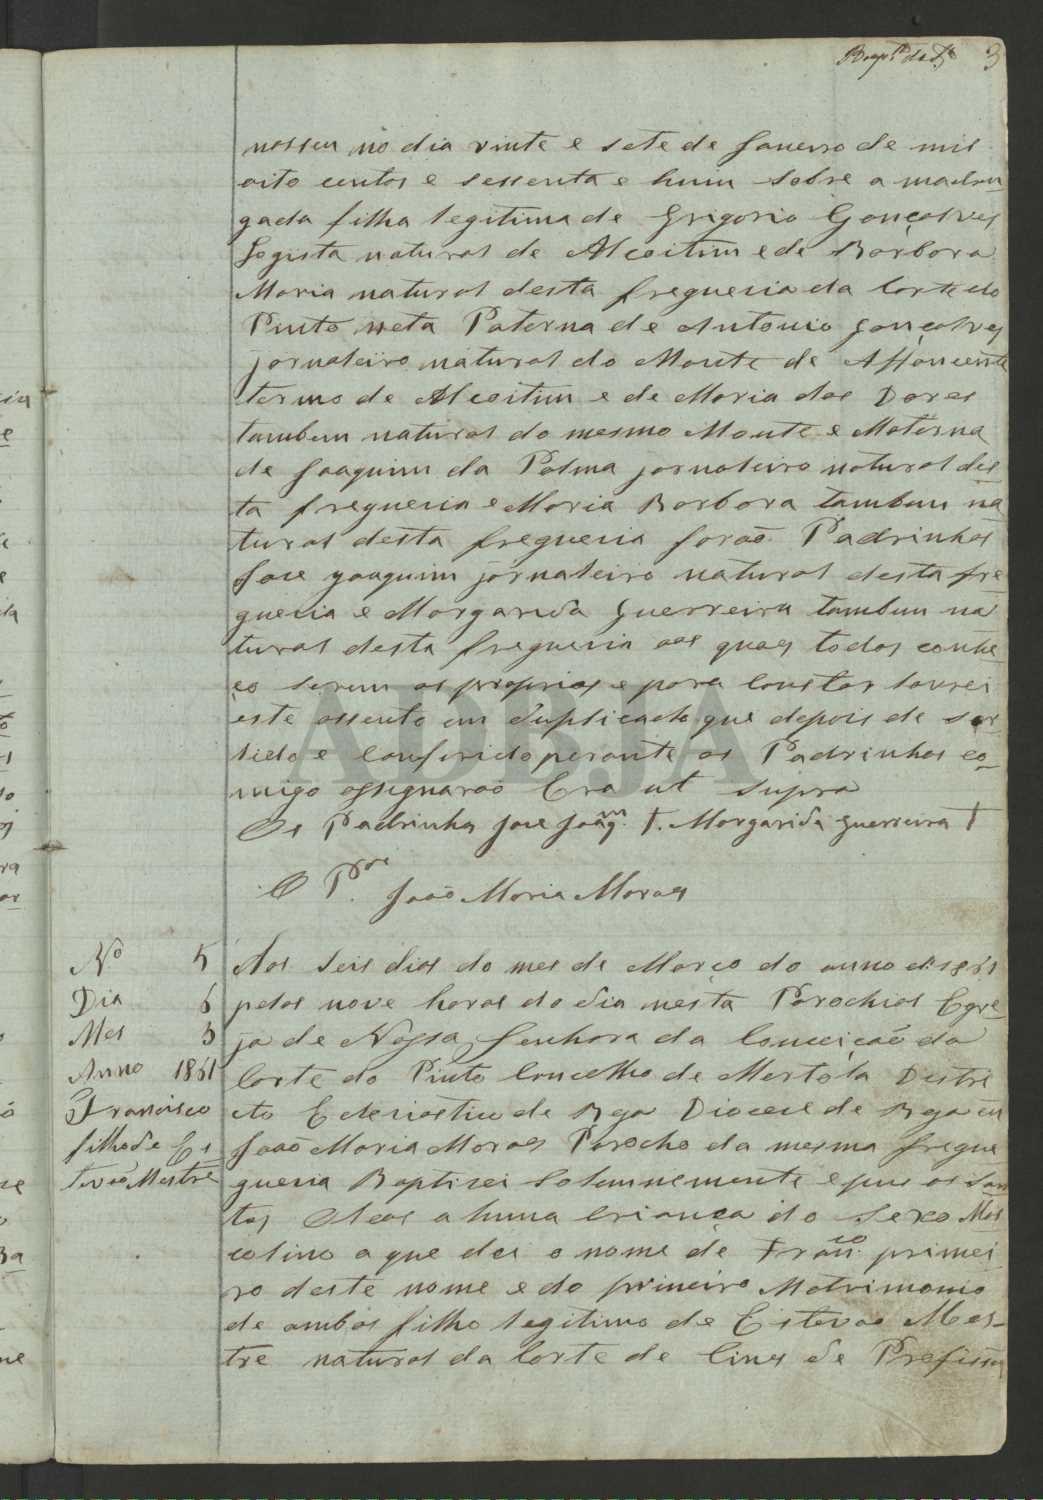 3
nasseu no dia vinte e sete de Janeiro de mil
oito centos e sessenta e hum sobre a madru
gada filha legitima de Grigorio Gonçalves
Logista natural de Alcoitim e de Barbora
Maria natural desta freguesia da Corte do
Pinto neta Paterna de Antonio Gonçalves
jornaleiro natural do Monte de Affoncente
termo de Alcoitim e de Maria das Dores
tambem natural do mesmo Monte e Materna
de Joaquim da Palma jornaleiro natural des
ta freguesia e Maria Barbora tambem na
tural desta freguesia forão Padrinhos
Jose Joaquim jornaleiro natural desta fre
guesia e Margarida Guerreira tambem na
tural desta freguesia aos quaes todos conhe-
ço serem os proprios e para constar lavrei
este assento em duplicado que depois de ser
lido e conferido perante os Padrinhos co-
migo assignarão Era ut supra
Os Padrinhos Jose Joaqm. †. Margarida Guerreira †
O P.
João Maria Moraes
No 5
Dia 6
Mes 3
Anno 1861
Francisco
filho de Es
tevão Mestre
Aos seis dias do mes de Março do anno de 1861
pelas nove horas do dia nesta Parochial Egre-
ja de Nossa Senhora da Conceição da
Corte do Pinto Concelho de Mertola Destri
cto Eclesiastico de Bja Diocese de Bja eu
João Maria Moraes Parocho da mesma fregue
guesia Baptisei Solemnemente e pus os San
tos Oleos a huma Criança do Sexo Mas
colino a que dei o nome de Franco. primei
ro deste nome e do primeiro Matrimonio
de ambos filho legitimo de Estevão Mes-
tre natural da Corte de Cines de
ADBJA